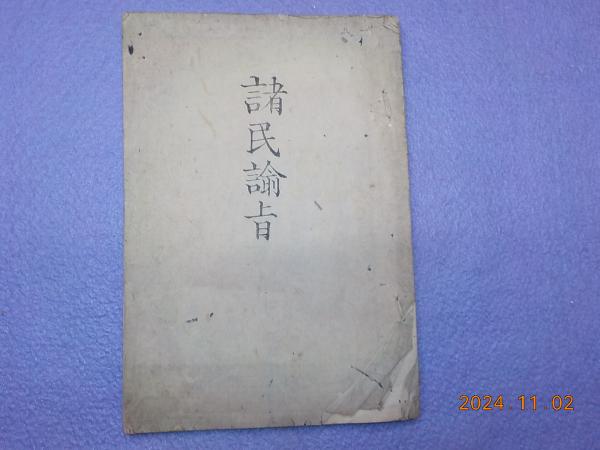 諸民諭旨
2024.11.02